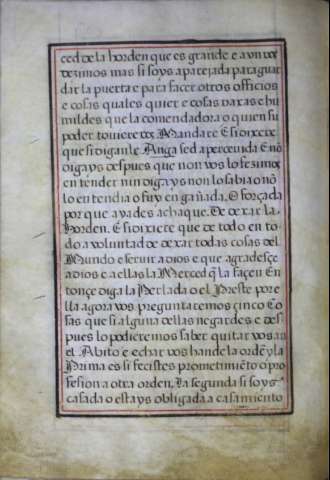 ced de la horden que es grande e avn vos
dezimos mas si soys aparejada para guar
dar la puerta e para facer otros officios
e cosas quales quier e cosas baxas e hu
mildes que la comendadora o quien su
poder toviere vos Mandare E si dixere
que si diganle Amiga sed apercevida E nō
digays despues que non vos lo fesimos
entender nin digays non lo sabia o nō
lo entendia o fuy engañada, O forçada
por que ayades achaque, De dexar la
Horden. E si dixiere que de todo en to
do a voluntad de dexar todas cosas del
Mundo e servir a dios e que agradesçe
a dios e a ellas la Merced q̄ la façen En
tonçe diga la Perlada o el Preste por e
lla agora vos preguntaremos çinco Co
sas que si alguna dellas negardes e des
pues lo podieremos saber quitar vos an
el Abito e echar vos han de la ordē y la
Prima es si fecistes prometimiēto o pro
fesion a otra orden, La segunda si soys
casada o estays obligada a casamiento